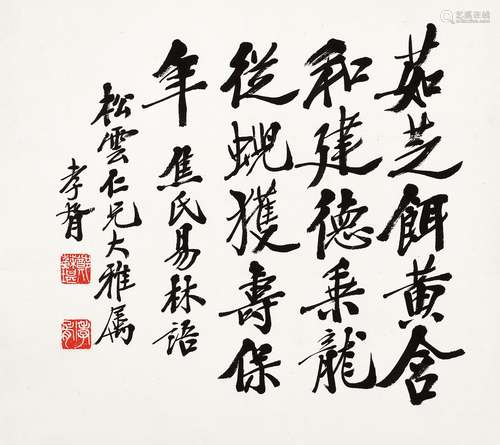 茹芝餌黃含
和建德乘龍
從蜺獲壽保
年 焦氏易林語
松雲仁兄大雅属
孝胥